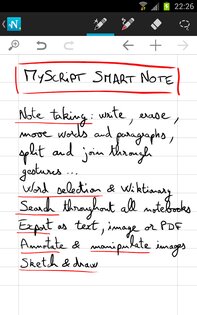 22:26
N
MyScript Smart Note
Note taking: write, erase,
move words and paragraphs,
split and join through
gestures ...
Word selection & Wiktionary
Search throughout all notebooks
Export as text, image or PDF
Annotate & manipulate images
Sketch & draw